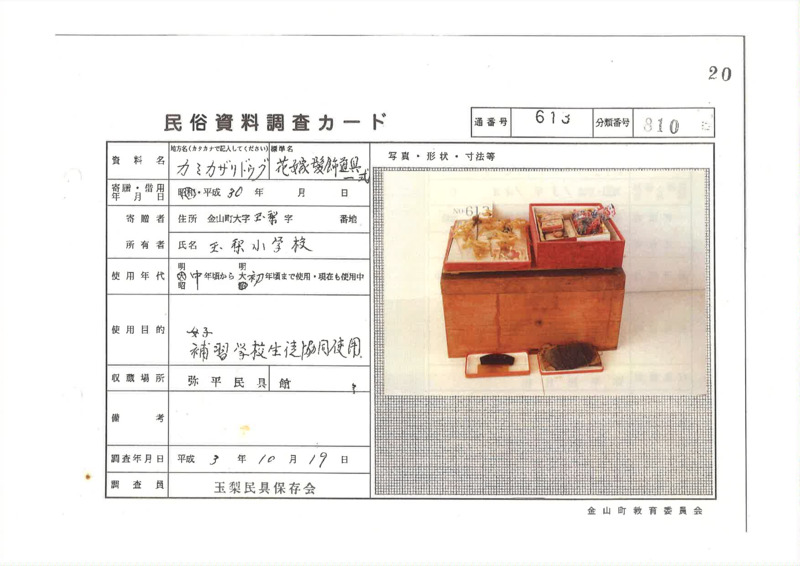 20
民俗資料調査カード
通番号 613 分類番号 810
資料名
地方名(カタカナで記入してください) 標準名
カミカザリドウグ 花嫁髪飾道具一式
写真・形状・寸法等
寄贈・借用年月日 昭和・平成 30 年 月 日
寄贈者 住所 金山町大字 玉梨 字 番地
所有者 氏名 玉梨小学校
使用年代 明大昭 中年頃から 明大昭 初年頃まで使用・現在も使用中
使用目的 女子
補習学校生徒協同使用
収蔵場所 弥平民具館
備考
調査年月日 平成 3 年 10 月 19 日
調査員 玉梨民具保存会
No 613
金山町教育委員会